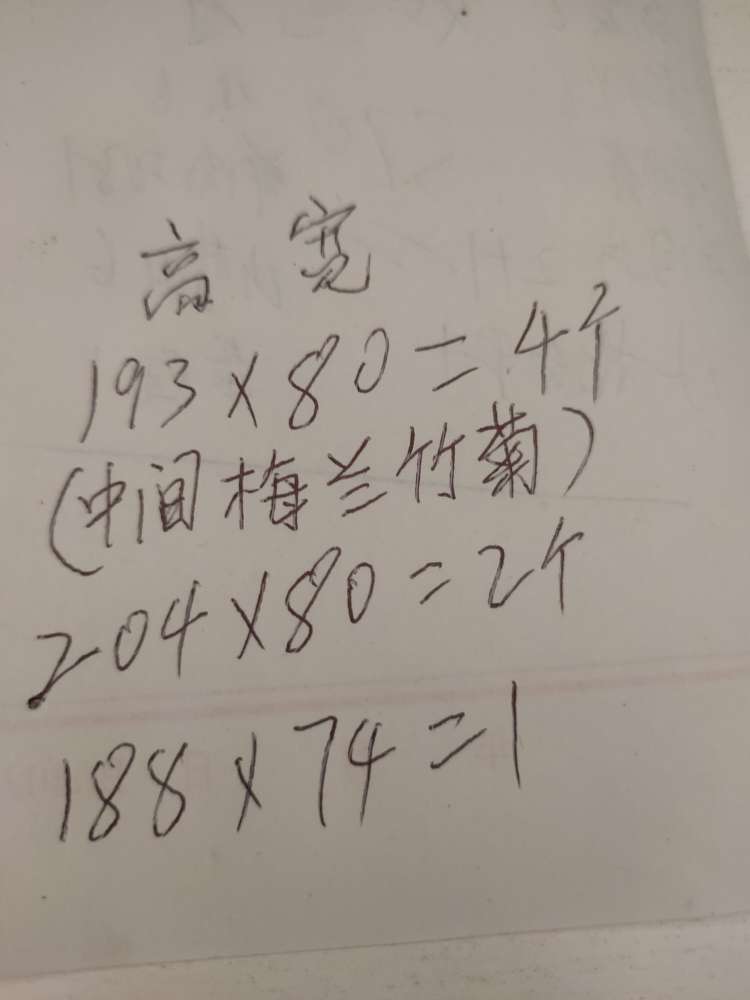 高 宽
193×80=4个
(中间梅兰竹菊)
204×80=2个
188×74=1